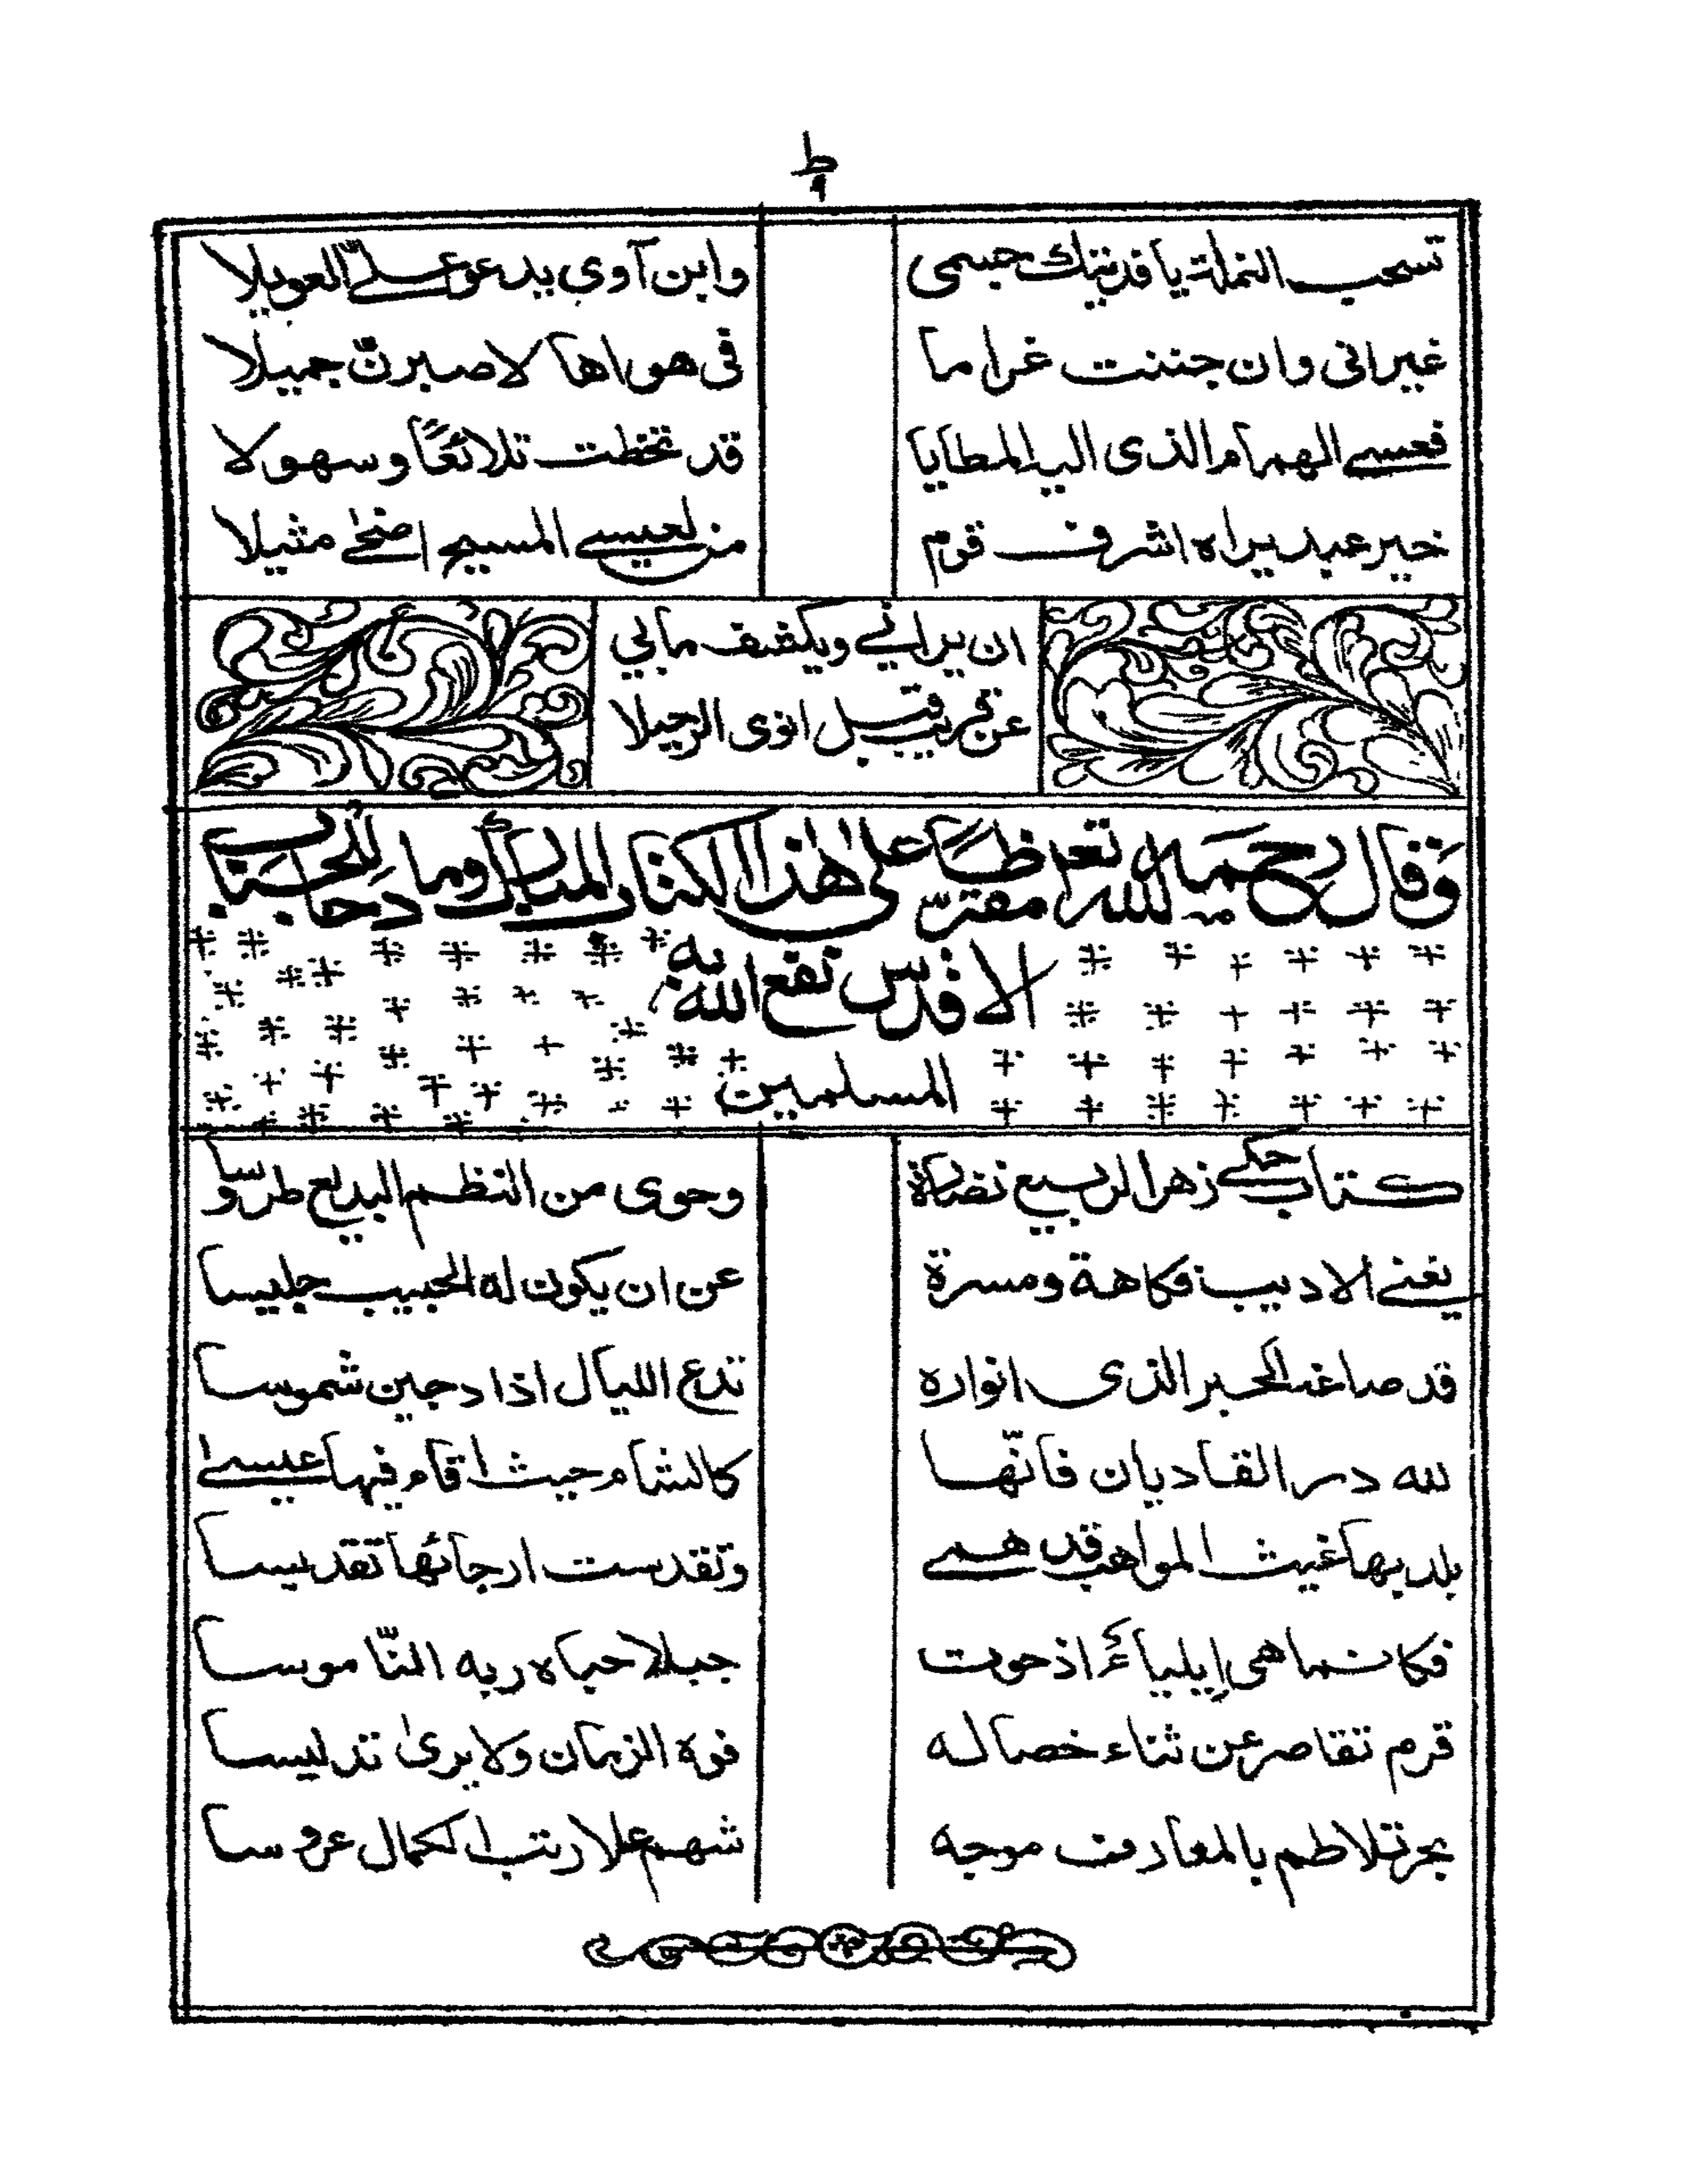 ط
٩
تسحب النملة يا فديتك جسمى وابن آوى يدعو علىّ العويلا
غيرانى وان جننت غراما فى هواها لاصبرنّ جميلا
فعسى الهمام الذى اليه المطايا قد تخطت تلائعًا وسهولا
خير عبد يراه اشرف قرم من لعيسى المسيح اضحى مثيلا
ان يرانى ويكشف مابى
عن قريب قبل انوى الرحيلا
وقال رحمه الله تعالى مقرّظًا على هذا الكتاب المبارك وما دحا للجناب
الاقدس نفع الله به
المسلمين
كتاب حكى زهر الربيع نضارة وحوى من النظم البديع طروسا
يغنى الاديب فكاهة ومسرة عن ان يكون له الحبيب جليسا
قد صاغه الحبر الذى انواره تدع الليال اذا دجين شموسا
لله در القاديان فانّها كالشام حيث اقام فيها عيسى
بلد بها غيث المواهب قد همى وتقدست ارجائها تقديسا
فكانما هى إيلياء اذ حوت جبلا حباه ربه النّاموسا
قرم تقاصر عن ثناء خصاله فوه الزمان ولا يرى تدليسا
بحر تلاطم بالمعارف موجه شهم علا رتب الكمال عروسا